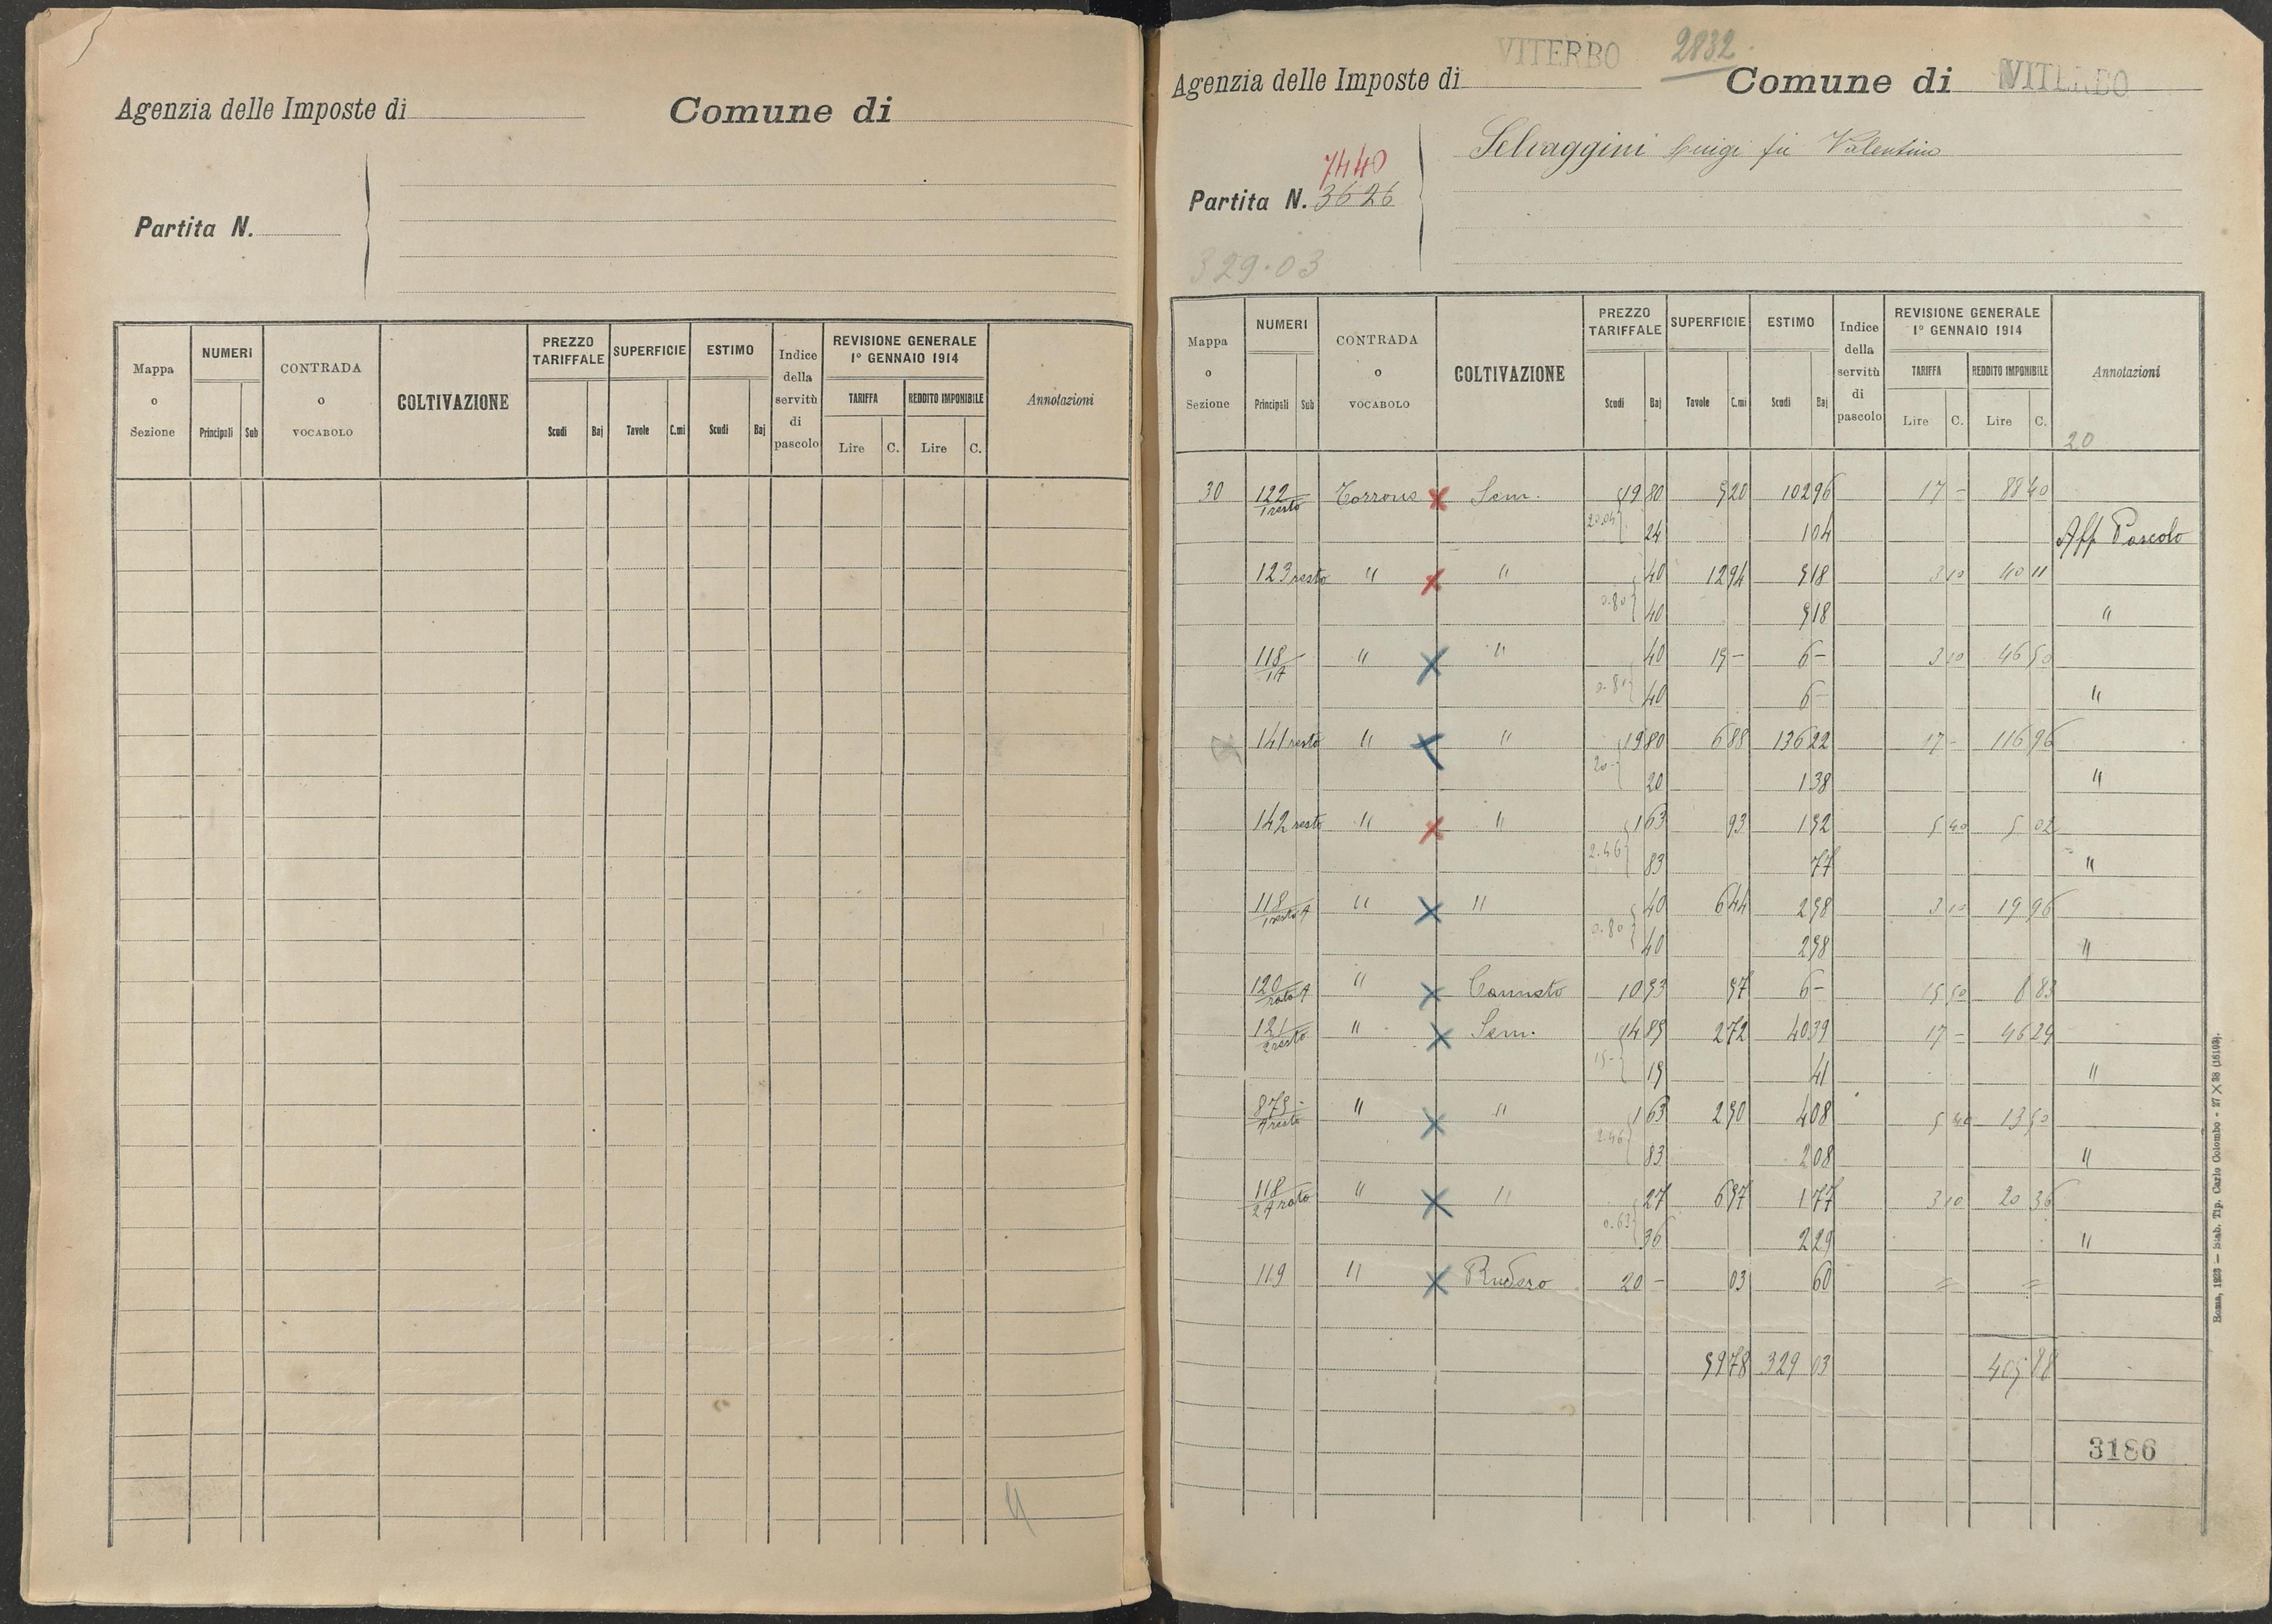 Agenzia delle Imposte di
Comune di
Partita N.
Mappa o Sezione
NUMERI
Principali Sub
CONTRADA o VOCABOLO
COLTIVAZIONE
PREZZO TARIFFALE
Scudi Baj
SUPERFICIE
Tavole C.mi
ESTIMO
Scudi Baj
Indice della servitù di pascolo
REVISIONE GENERALE 1º GENNAIO 1914
TARIFFA
Lire C.
REDDITO IMPONIBILE
Lire C.
Annotazioni
VITERBO 2832
Agenzia delle Imposte di Comune di VITERBO
Selvaggini Luigi fu Valentino
7440
Partita N. 3626
329.03
Mappa o Sezione
NUMERI
Principali Sub
CONTRADA o VOCABOLO
COLTIVAZIONE
PREZZO TARIFFALE
Scudi Baj
SUPERFICIE
Tavole C.mi
ESTIMO
Scudi Baj
Indice della servitù di pascolo
REVISIONE GENERALE 1º GENNAIO 1914
TARIFFA
Lire C.
REDDITO IMPONIBILE
Lire C.
Annotazioni
20
30 122/1 resto Torrone x Sem. 19 80 5 20 102 96 17 - 88 40
20.04 24 1 04 Aff Pascolo
123 resto " x " 40 12 94 5 18 3 10 40 11
0.80 40 5 18 "
118/1A " x " 40 15 - 6 - 3 10 46 50
0.80 40 6 - "
141 resto " x " 19 80 6 88 136 22 17 - 116 96
20 - 20 1 38 "
142 resto " x " 1 63 93 1 52 5 40 5 02
2.46 83 77 "
118/1 resto A " x " 40 6 44 2 58 3 10 19 96
0.80 40 2 58 "
120/rata A " x Canneto 10 53 57 6 - 15 50 8 83
121/2 resto " x Sem. 14 85 2 72 40 39 17 - 46 24
15 - 15 41 "
875/A resto " x " 1 63 2 50 4 08 5 40 13 50
2.46 83 2 08 "
118/2A rata " x " 27 6 57 1 77 3 10 20 36
0.63 36 2 29 "
119 " x Rudero 20 - 03 60 = =
59 78 329 03 405 88
3186
Roma, 1923 — Stab. Tip. Carlo Colombo - 27 X 38 (16193).